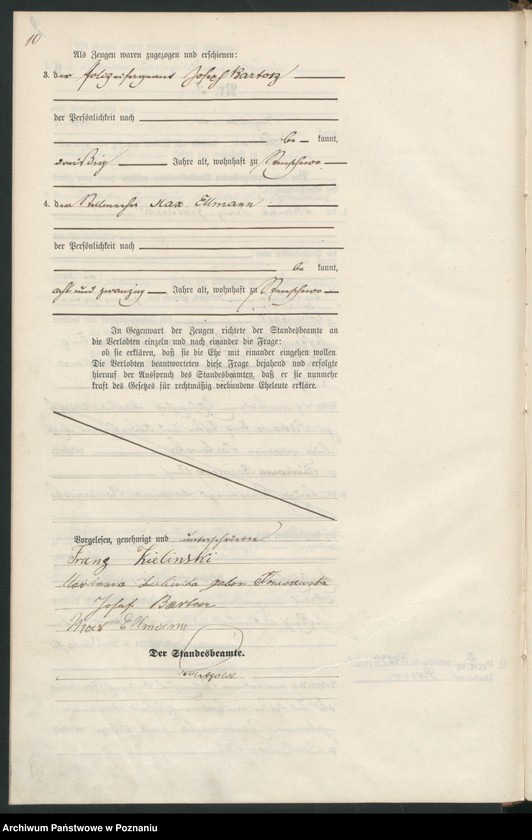 10
Als Zeugen waren zugezogen und erschienen:
3. der Polizeisergeant Joseph Bartosz
der Persönlichkeit nach
be kannt,
dreißig Jahre alt, wohnhaft zu
4. der Stellmacher Max Ellmann
der Persönlichkeit nach
be kannt,
acht und zwanzig Jahre alt, wohnhaft zu
In Gegenwart der Zeugen richtete der Standesbeamte an
die Verlobten einzeln und nach einander die Frage:
ob sie erklären, daß sie die Ehe mit einander eingehen wollen.
Die Verlobten beantworteten diese Frage bejahend und erfolgte
hierauf der Ausspruch des Standesbeamten, daß er sie nunmehr
kraft des Gesetzes für rechtmäßig verbundene Eheleute erkläre.
Vorgelesen, genehmigt und unterschrieben
Franz Zielinski
Zielinska
Josef Bartosz
Max Ellmann
Der Standesbeamte.
Archiwum Państwowe w Poznaniu